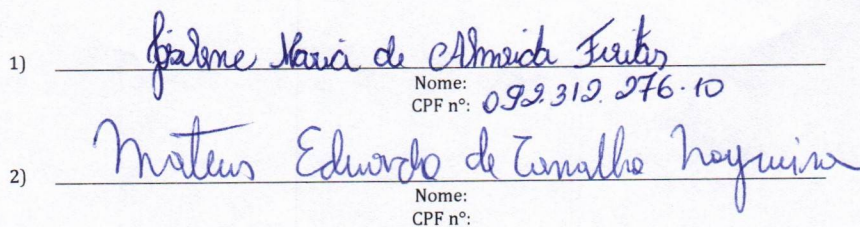 1) Maria de Almeida Freitas
Nome:
CPF nº: 092.312.276-10
2) Mateus Eduardo de Carvalho Nogueira
Nome:
CPF nº: